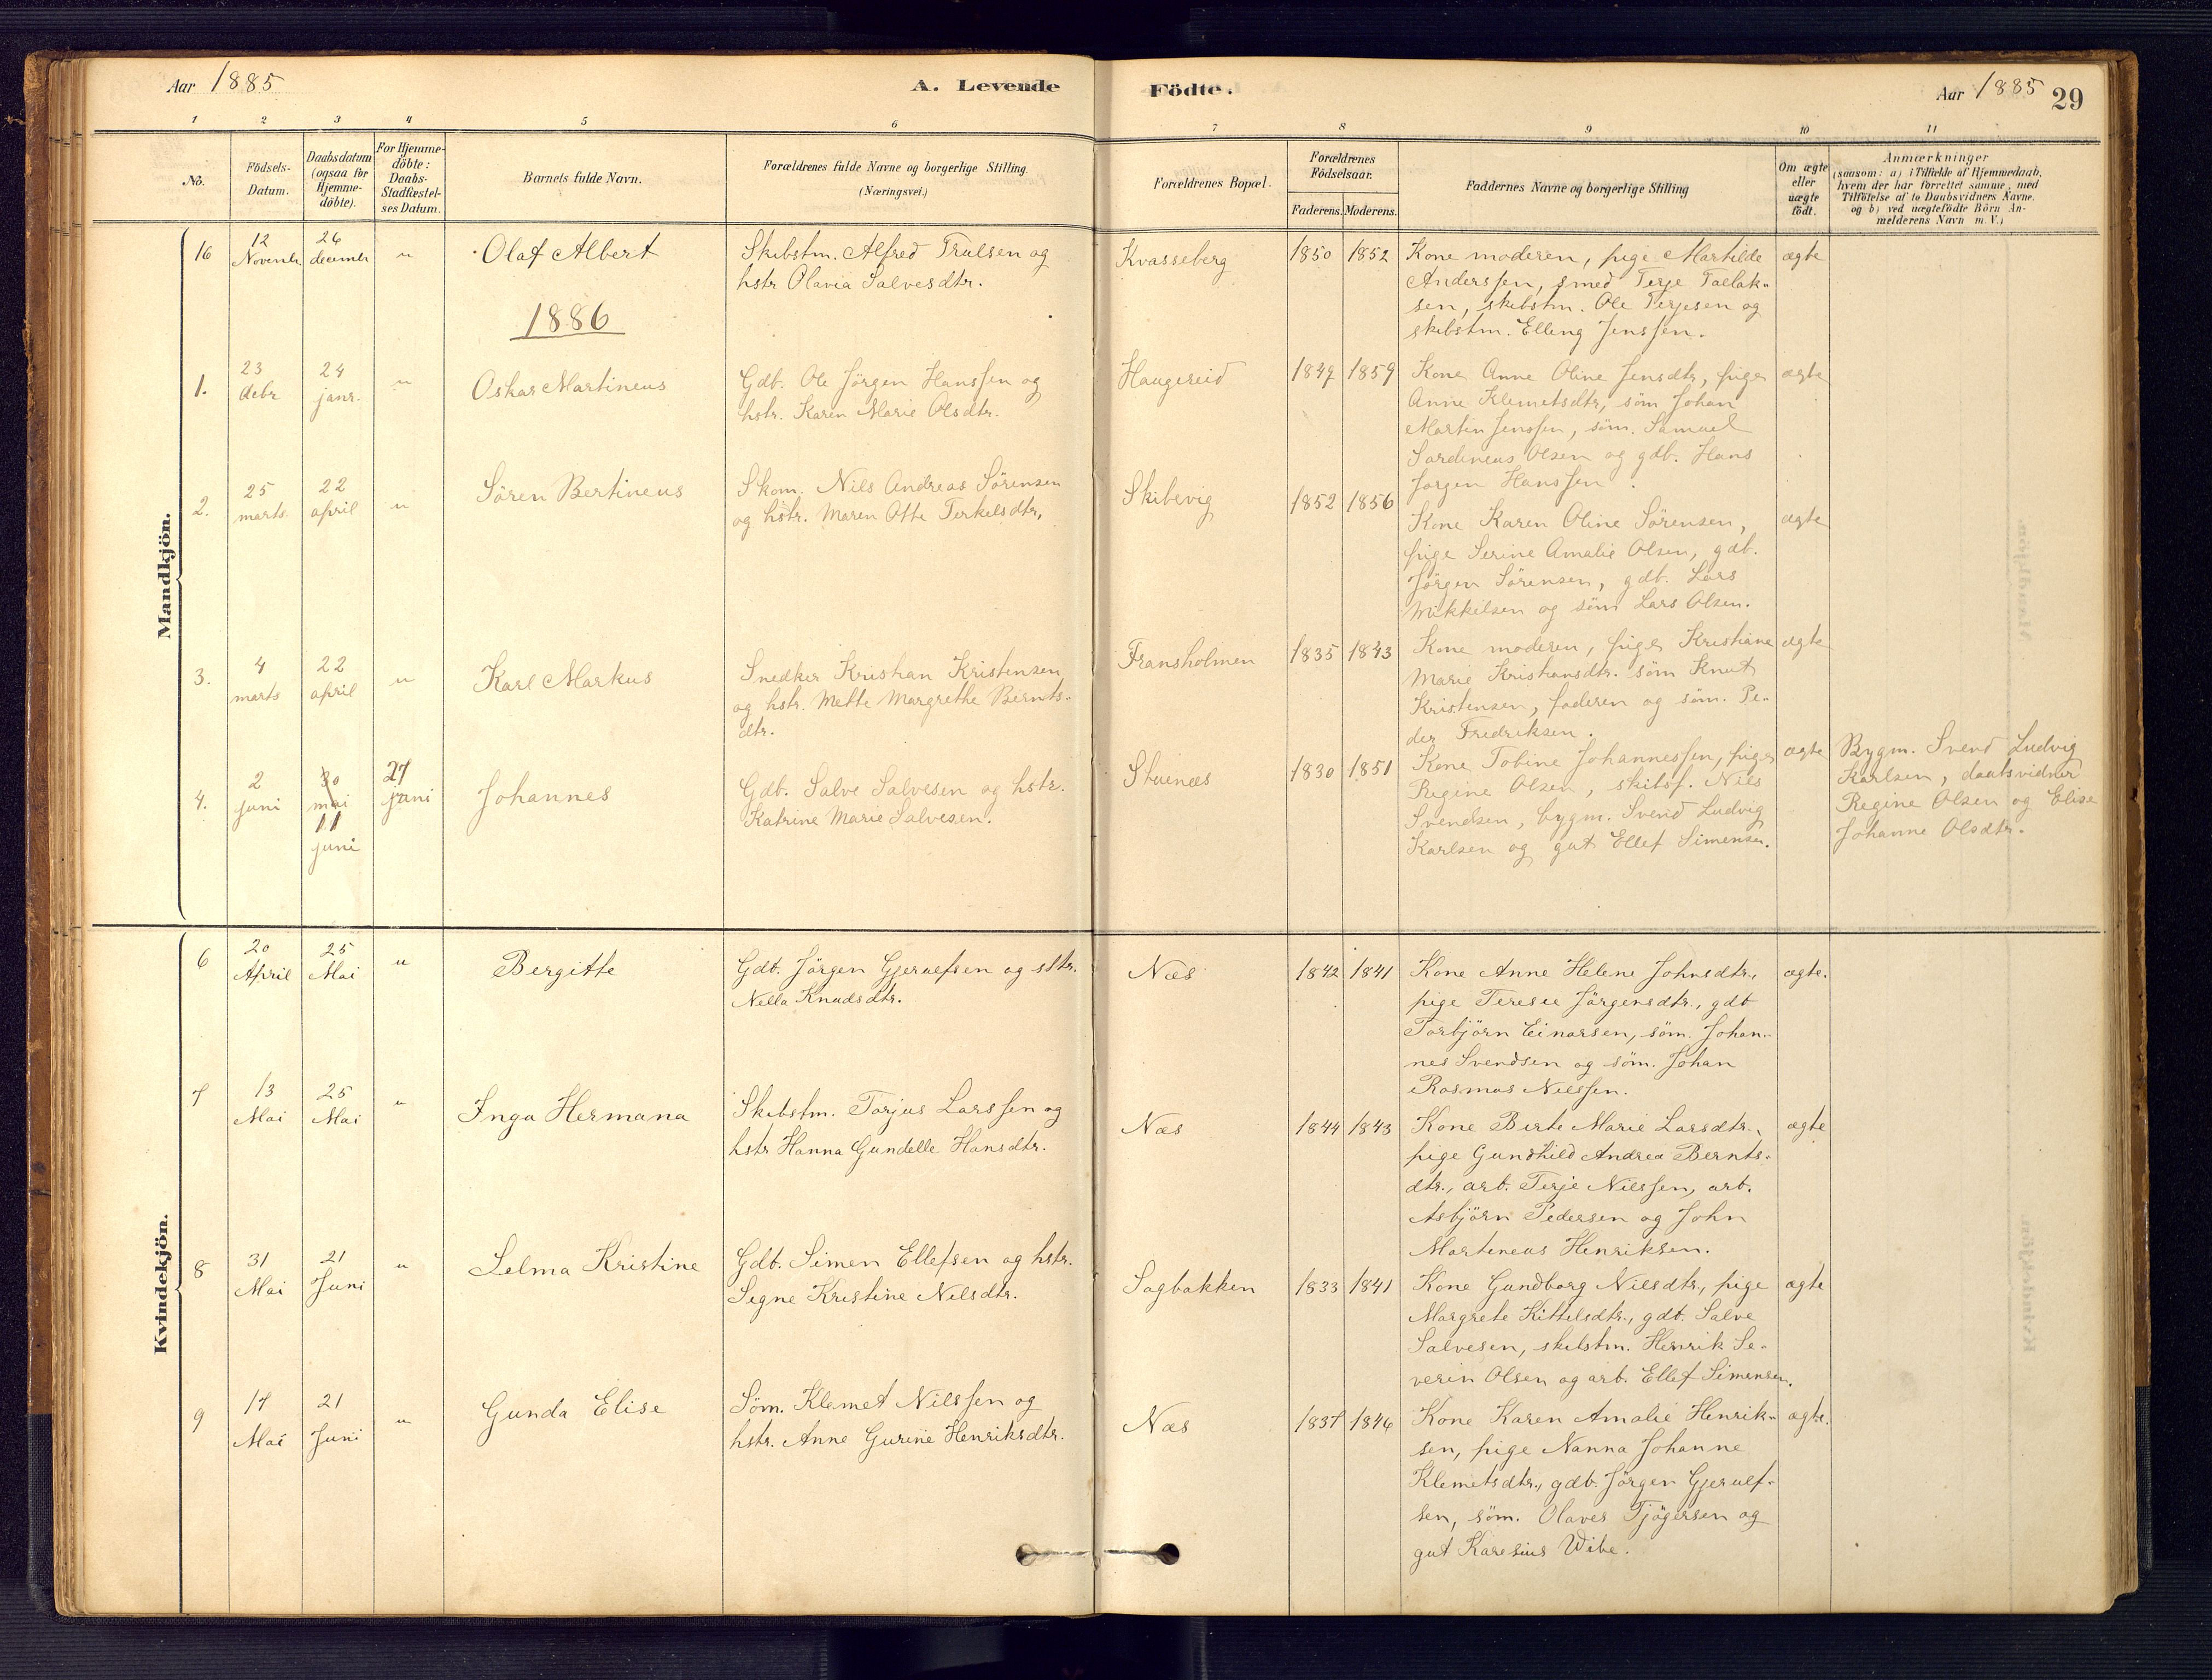 Aar 1885
A. Levende
Födte.
Aar 1885
29
1 2 3 4 5 6 7 8 9 10 11
No.
Födsels-
Datum.
Daabsdatum
(ogsaa for
Hjemme-
döbte).
For Hjemme-
döbte:
Daabs-
Stadfæstel-
ses Datum.
Barnets fulde Navn.
Forældrenes fulde Navne og borgerlige Stilling.
(Næringsvei.)
Forældrenes Bopæl.
Forældrenes
Födselsaar.
Faderens. Moderens.
Faddernes Navne og borgerlige Stilling
Om ægte
eller
uægte
födt.
Anmærkninger
(saasom: a) i Tilfælde af Hjemmedaab,
hvem der har forrettet samme, med
Tilföielse af to Daabsvidners Navne,
og b) ved uægtefödte Börn An-
melderens Navn m. V.)
Mandkjön.
16
12
Novembr.
26
decembr
"
Olaf Albert
Skibstm. Alfred Trulsen og
hstr Olavia Salvesdtr.
Kvasseberg
1850 1852
Kone moderen, pige Martilde
Anderssen, smed Terje Tallak-
sen, skibstm. Ole Terjesen og
skibstm. Elling Jenssen.
ægte
1886
1.
23
debr
24
janr.
"
Oskar Martineus
Gdb. Ole Jörgen Hanssen og
hstr. Karen Marie Olsdtr.
Haugereid
1849 1859
Kone Anne Oline Jensdtr, pige
Anne Klemetsdtr, söm Johan
Martin Jenssen, söm. Samuel
Sardineus Olsen og gdb. Hans
Jörgen Hanssen.
ægte
2.
25
marts.
22
april
"
Sören Bertineus
Skom. Nils Andreas Sörensen
og hstr. Maren Otte Terkelsdtr,
Skibevig
1852 1856
Kone Karen Oline Sörensen,
pige Serine Amalie Olsen, gdb.
Jörgen Sörensen, gdb. Lars
Mikkelsen og söm Lars Olsen.
ægte
3.
4
marts
22
april
"
Karl Markus
Snedker Kristian Kristensen
og hstr. Mette Margrethe Bernts-
dtr.
Fransholmen
1835 1843
Kone moderen, pige Kristiane
Marie Kristiansdtr. söm Knut
Kristensen, faderen og söm. Pe-
der Fredriksen.
ægte
4.
2
juni
30
mai
11
juni
27
juni
Johannes
Gdb. Salve Salvesen og hstr.
Katrine Marie Salvesen.
Stuenæs
1830 1851
Kone Tobine Johannessen, pige
Regine Olsen, skibsf. Nils
Svendsen, bygm. Svend Ludvig
Karlsen og gut Ellef Simensen.
ægte
Bygm. Svend Ludvig
Karlsen, daabsvidner
Regine Olsen og Elise
Johanne Olsdtr.
Kvindekjön.
6
20
April
25
Mai
"
Bergitte
Gdb. Jörgen Gjerulfsen og hstr.
Nella Knudsdtr.
Næs
1842 1841
Kone Anne Helene Johnsdtr.,
pige Terese Jörgensdtr., gdb
Torbjörn Einarsen, söm. Johan-
nes Svendsen og söm. Johan
Rasmus Nilssen.
ægte.
7
13
Mai
25
Mai
"
Inga Hermana
Skibstm. Torjus Larssen og
hstr Hanna Gundelle Hansdtr.
Næs
1844 1843
Kone Birte Marie Larsdtr.,
pige Gundhild Andrea Bernts-
dtr., arb. Terje Nilssen, arb.
Asbjörn Pedersen og John
Martineus Henriksen.
ægte
8
31
Mai
21
Juni
"
Selma Kristine
Gdb. Simen Ellefsen og hstr.
Segne Kristine Nilsdtr.
Sagbakken
1833 1841
Kone Gundborg Nilsdtr., pige
Margrete Kittelsdtr., gdb. Salve
Salvesen, skibstm. Henrik Se-
verin Olsen og arb. Ellef Simensen.
ægte
9
17
Mai
21
Juni
"
Gunda Elise
Söm. Klemet Nilssen og
hstr. Anne Gurine Henriksdtr.
Næs
1837 1846
Kone Karen Amalie Henrik-
sen, pige Nanna Johanne
Klemetsdtr., gdb. Jörgen Gjerulf-
sen, söm. Olaves Tjögersen og
gut Karesius Wibe.
ægte.